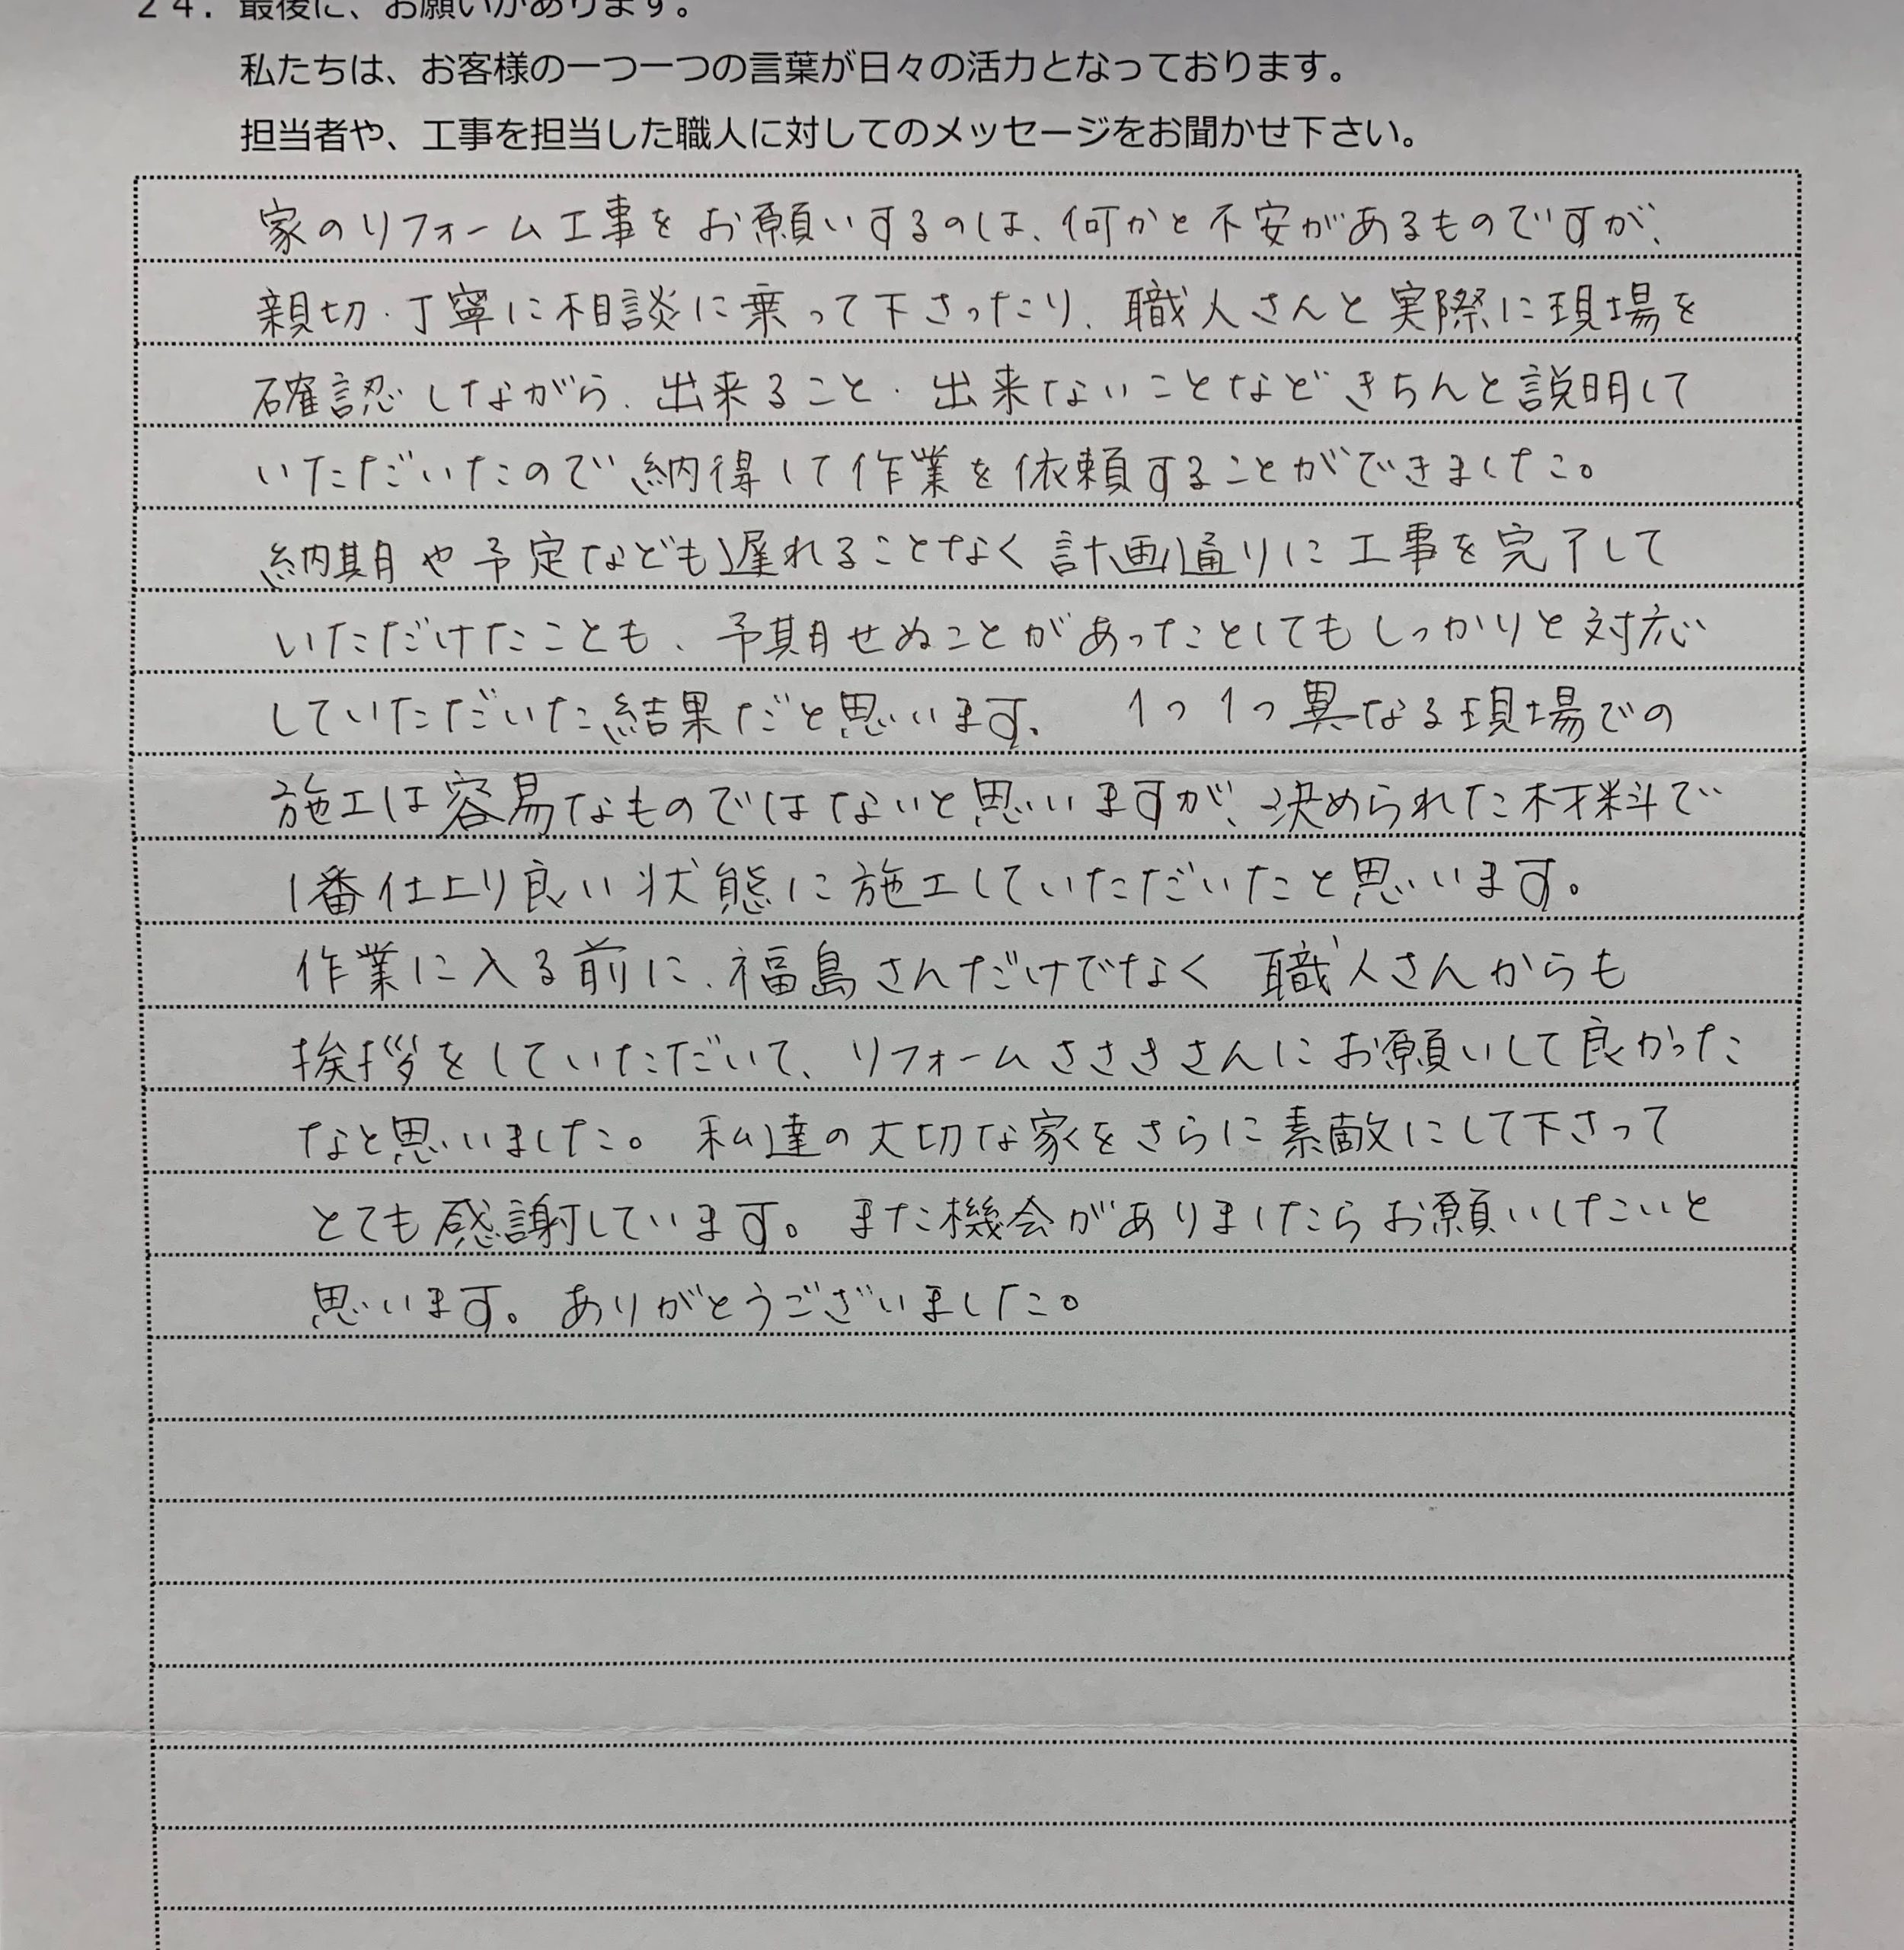 ２４．最後に、お願いがあります。
私たちは、お客様の一つ一つの言葉が日々の活力となっております。
担当者や、工事を担当した職人に対してのメッセージをお聞かせ下さい。
家のリフォーム工事をお願いするのは、何かと不安があるものですが、
親切・丁寧に相談に乗って下さったり、職人さんと実際に現場を
確認しながら、出来ること・出来ないことなどきちんと説明して
いただいたので納得して作業を依頼することができました。
納期や予定なども遅れることなく計画通りに工事を完了して
いただけたことも、予期せぬことがあったとしてもしっかりと対応
していただいた結果だと思います。 1つ1つ異なる現場での
施工は容易なものではないと思いますが、決められた材料で
1番仕上り良い状態に施工していただいたと思います。
作業に入る前に、福島さんだけでなく 職人さんからも
挨拶をしていただいて、リフォームささきさんにお願いして良かった
なと思いました。 私達の大切な家をさらに素敵にして下さって
とても感謝しています。また機会がありましたらお願いしたいと
思います。ありがとうございました。